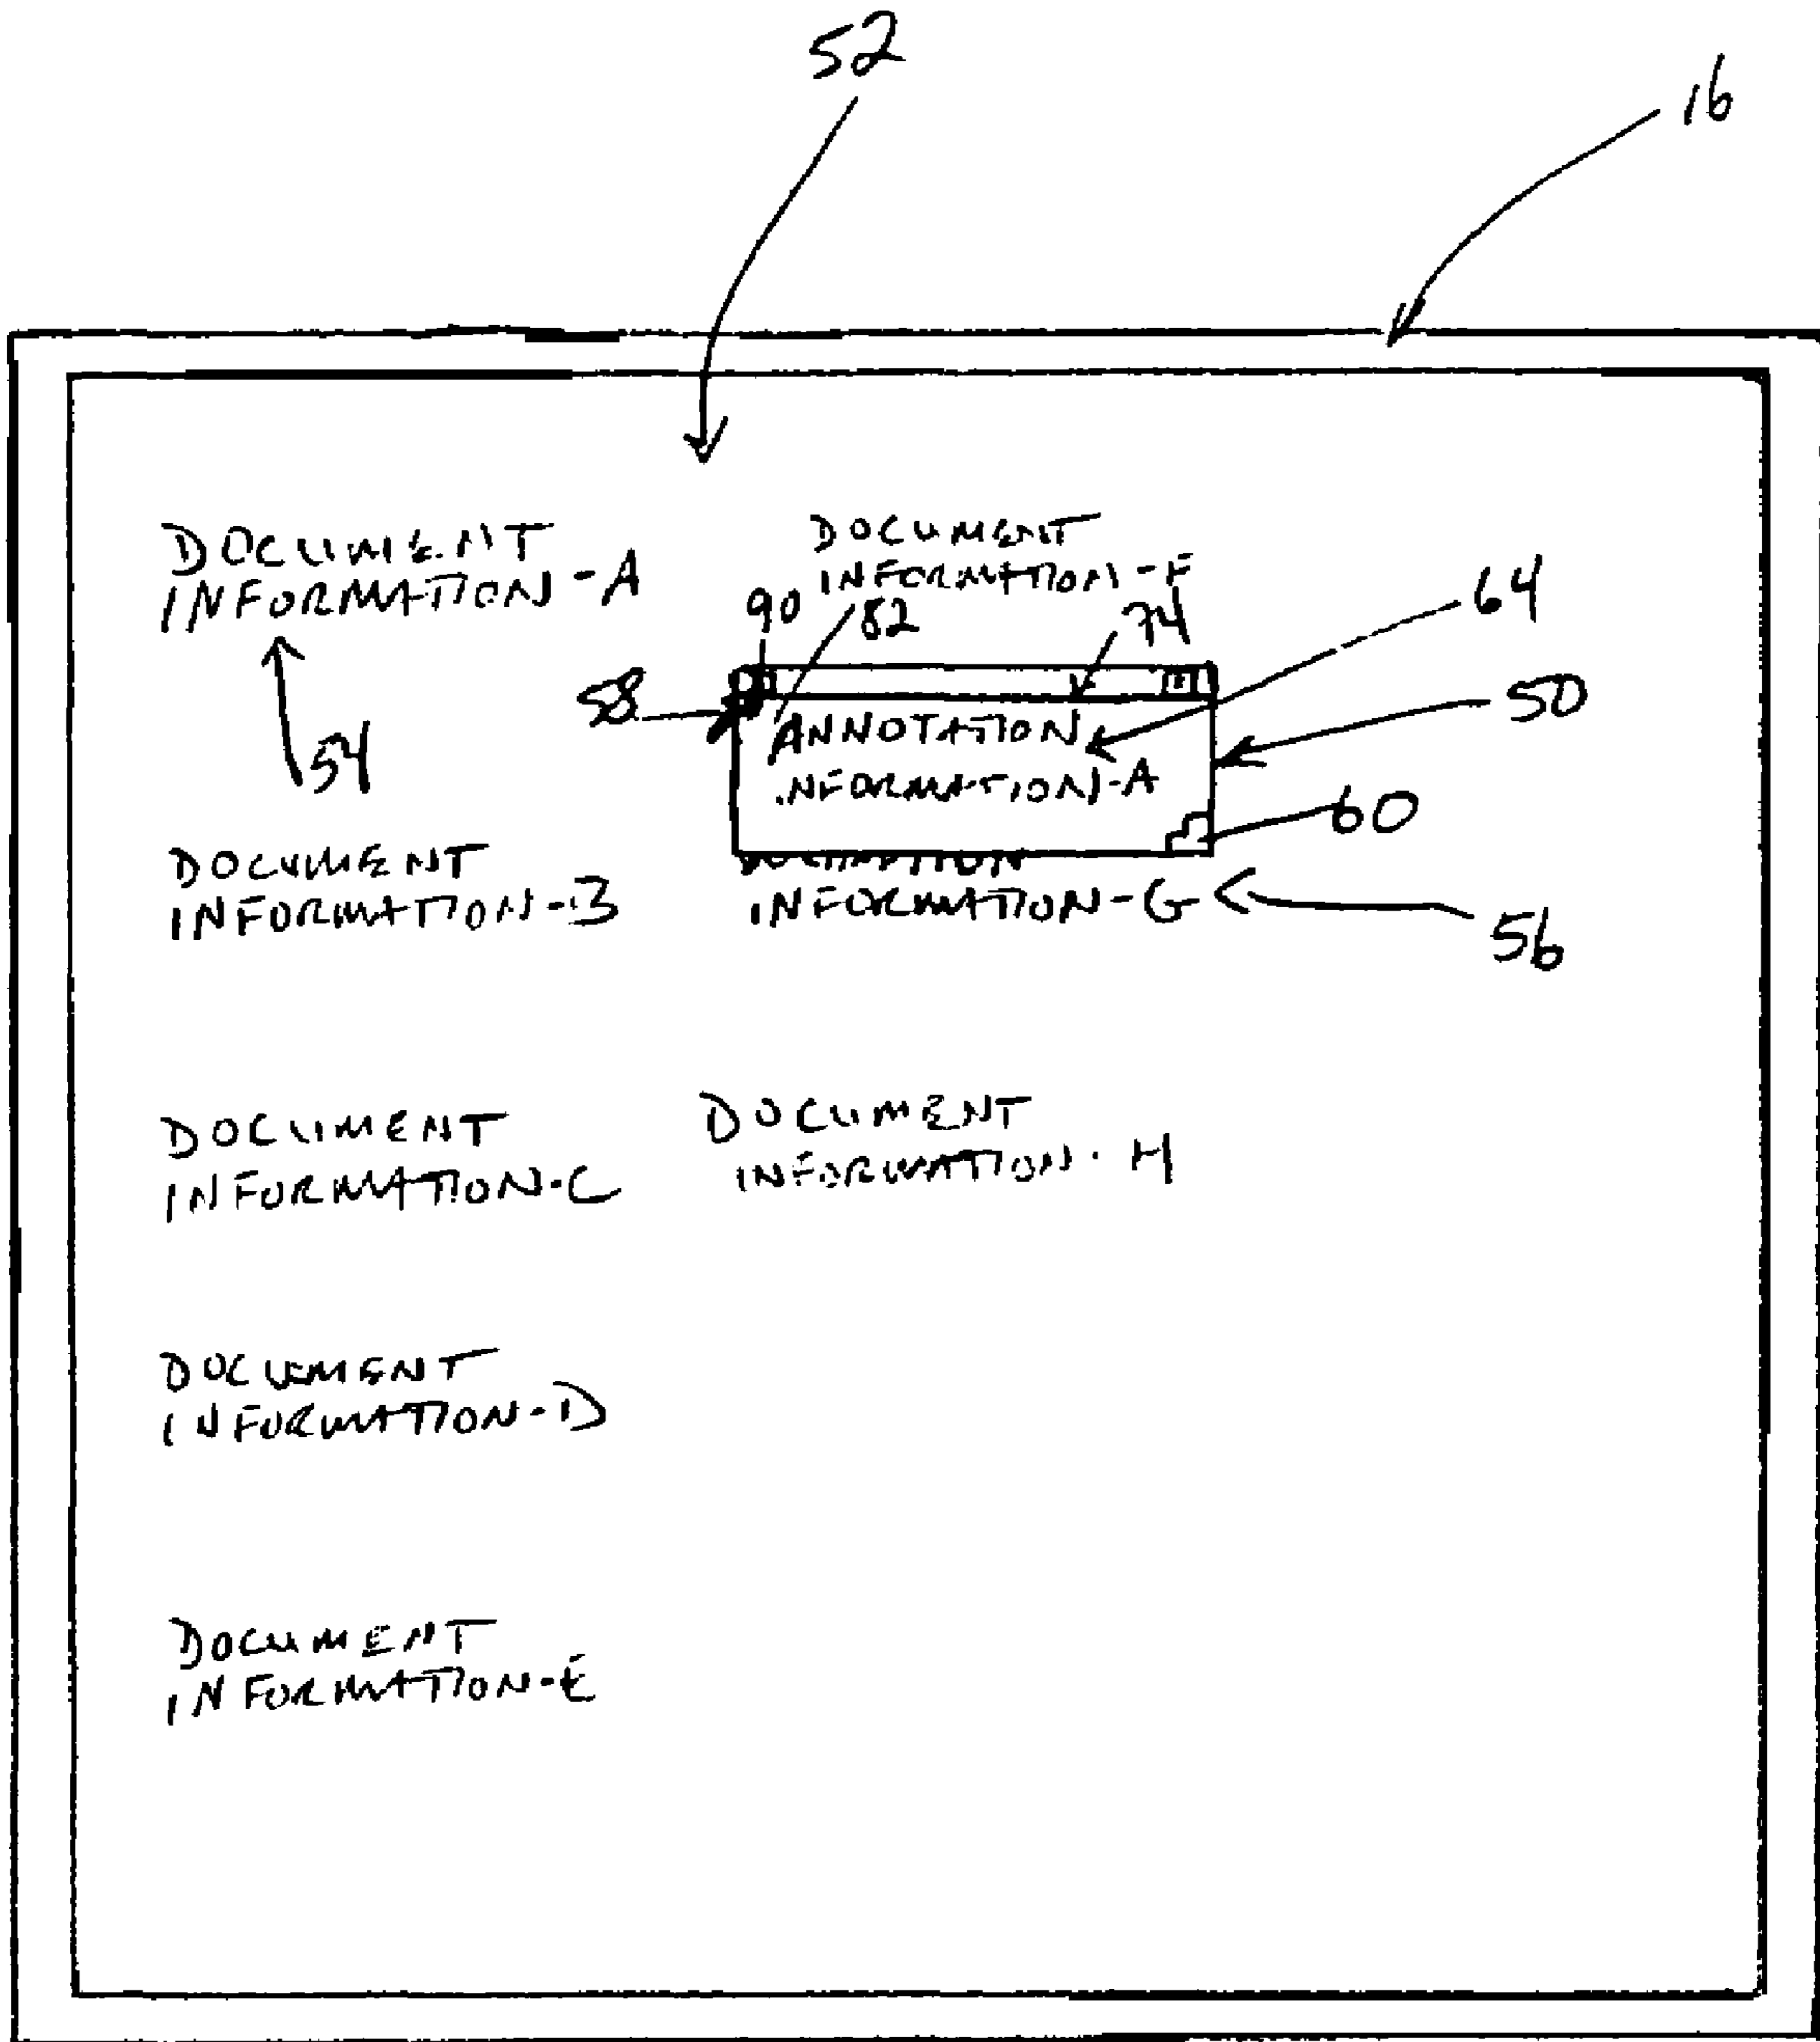 52
16
DOCUMENT
INFORMATION-A
54
DOCUMENT
INFORMATION-F
90
82
74
64
58
ANNOTATION
INFORMATION-A
50
60
DOCUMENT
INFORMATION-B
INFORMATION-G
56
DOCUMENT
INFORMATION-C
DOCUMENT
INFORMATION-H
DOCUMENT
INFORMATION-D
DOCUMENT
INFORMATION-E